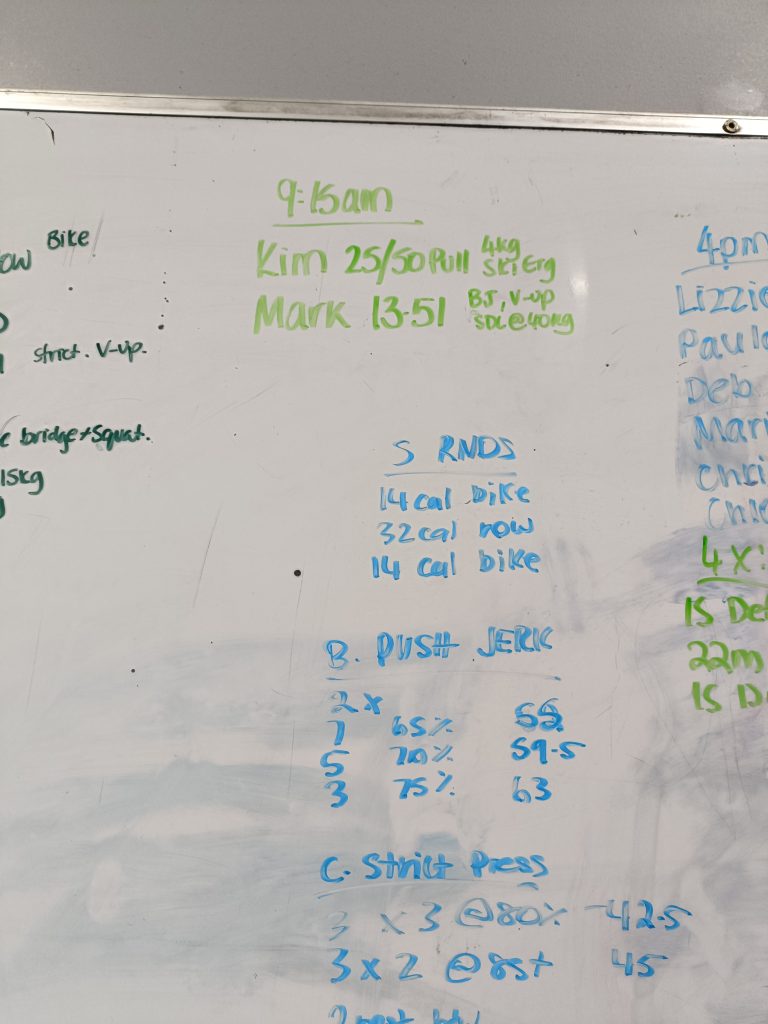 Bike
ow
strict. V-up.
bridge + Squat.
15kg
9:15am
Kim 25/50 Pull 4kg Ski Erg
Mark 13.51 BJ, V-up SDL @ 40kg
5 RNDS
14 cal bike
32 cal row
14 cal bike
B. PUSH JERK
2 x
7 65%
5 70% 59.5
3 75% 63
C. Strict Press
3 x 3 @80% -42.5
3 x 2 @85+ 45
4pm
Lizzie
Paul
Deb
Mari
Chri
Chl
4 x
15 De
22m
15 D